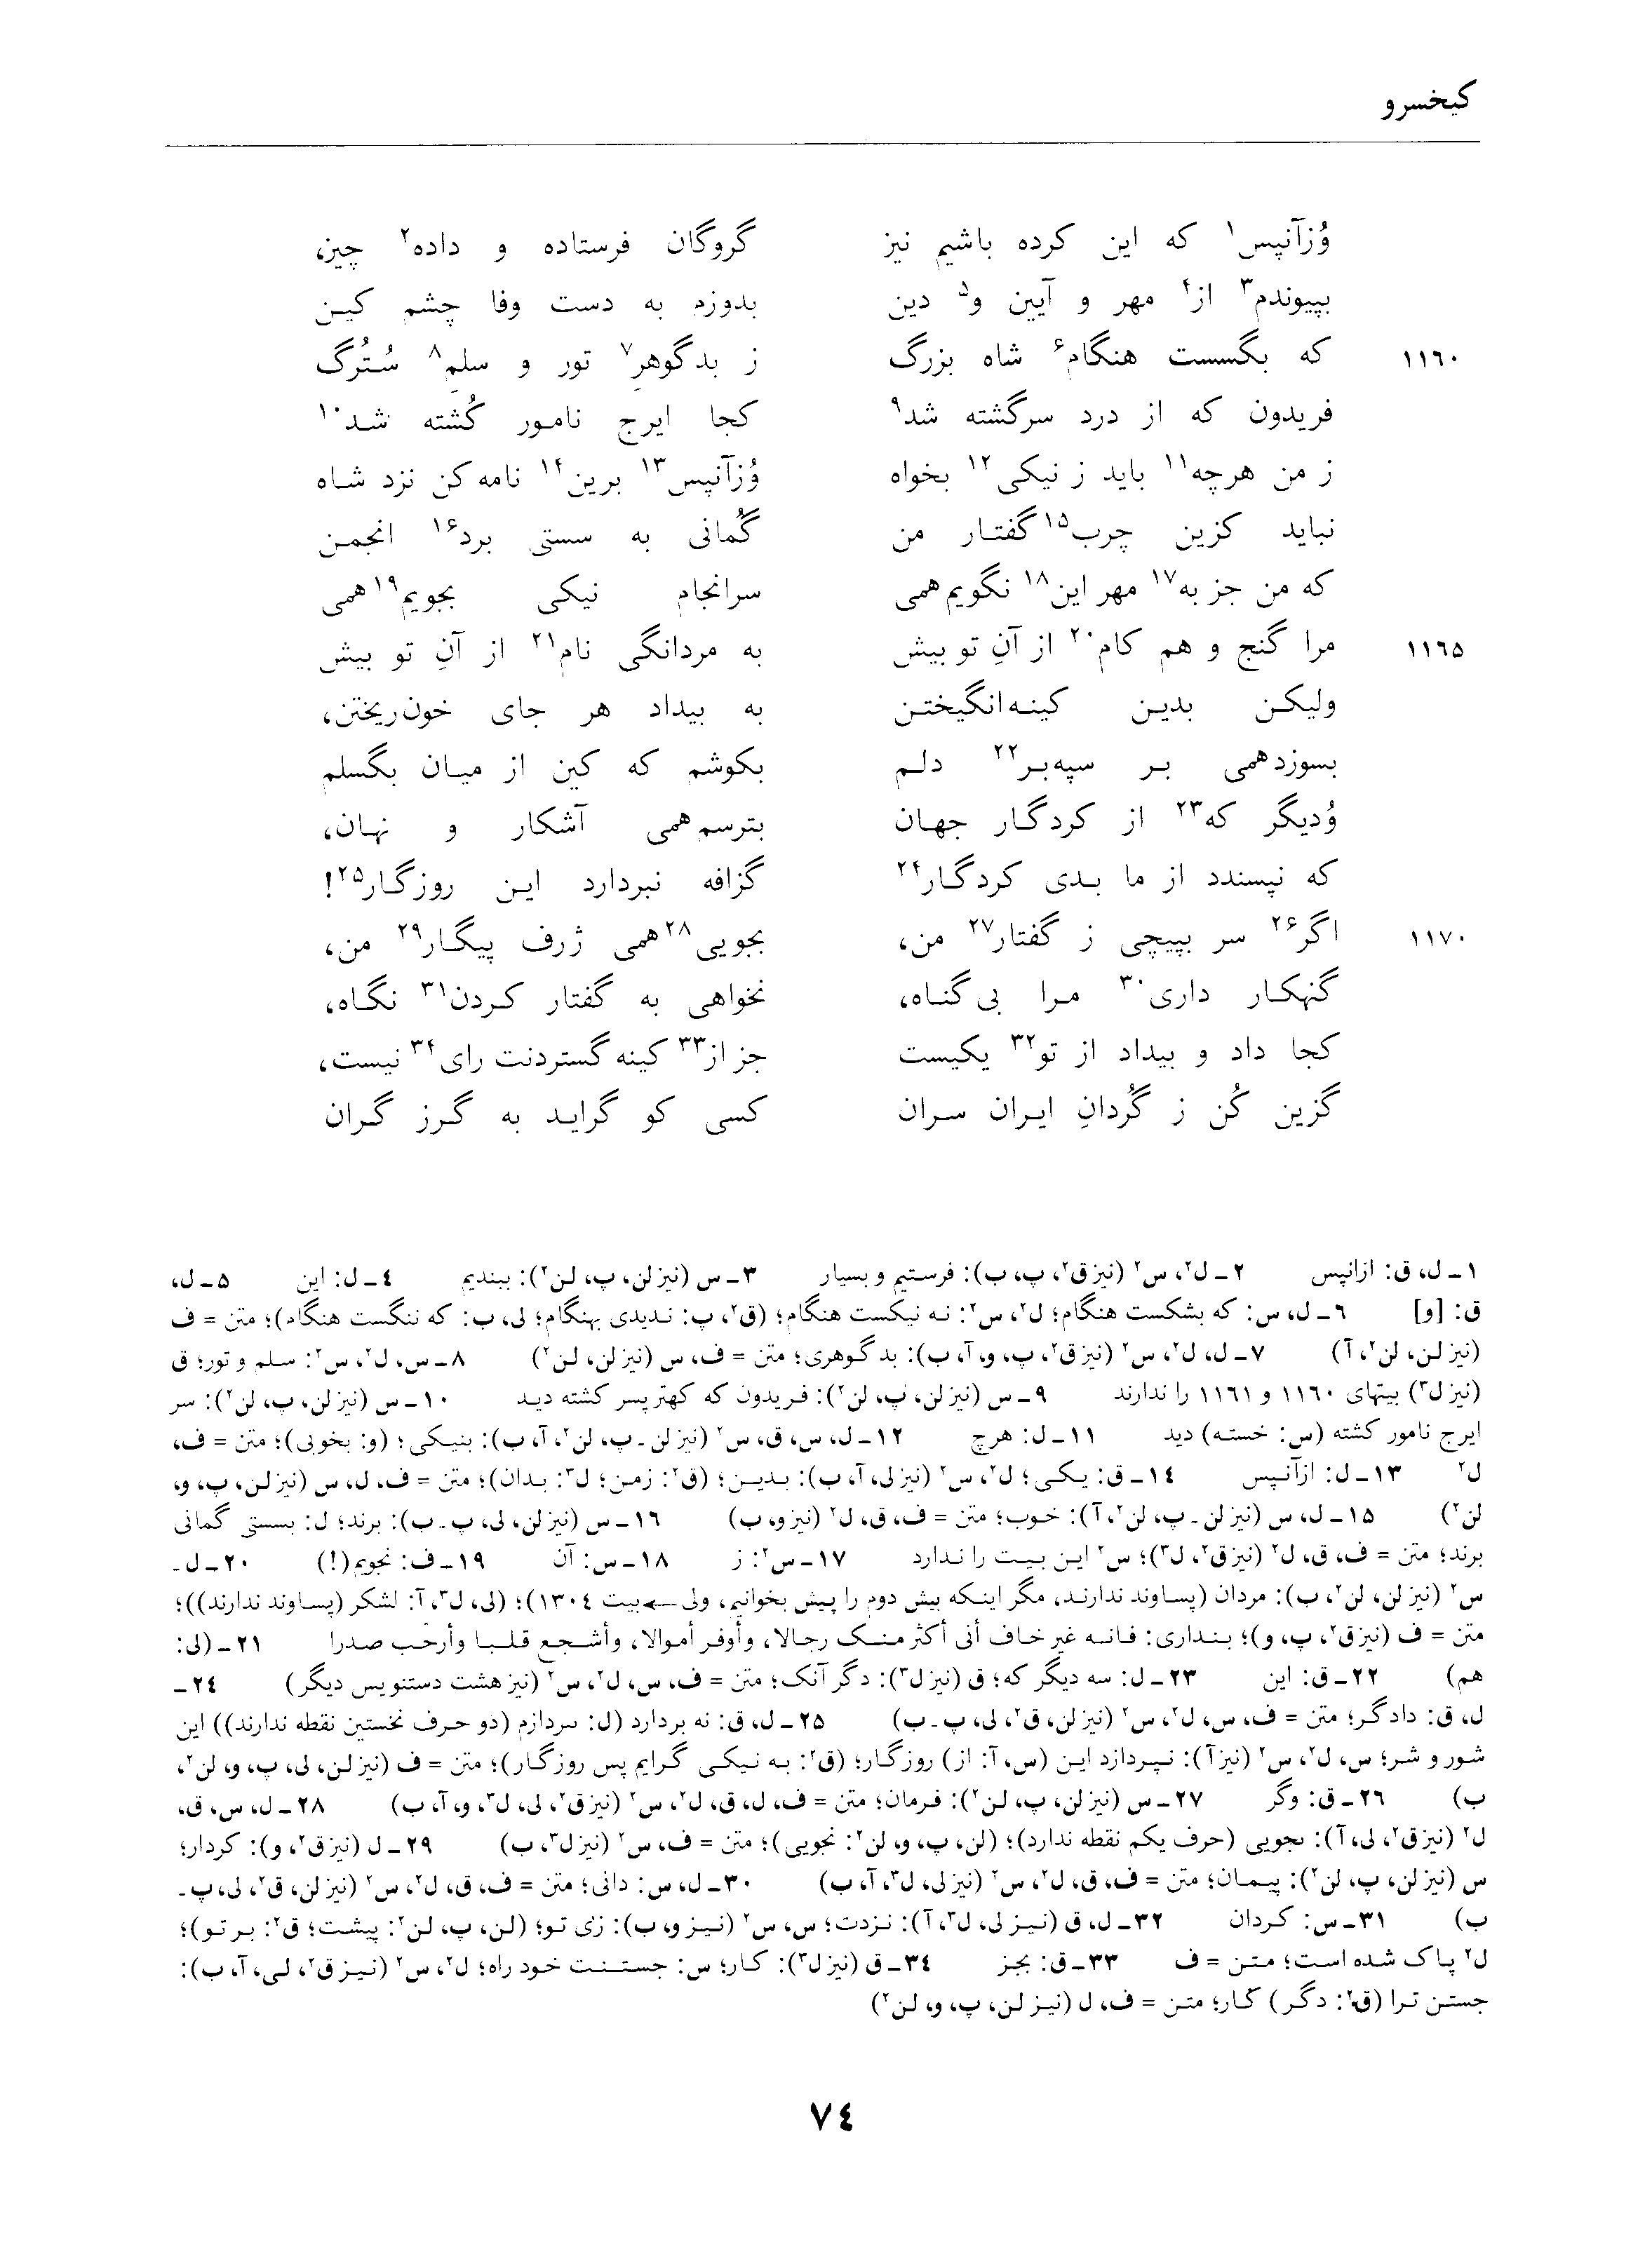 کیخسرو
وُزآنپس۱ که این کرده باشیم نیز گروگان فرستاده و داده۲ چیز،
بپیوندم۳ از۴ مهر و آیین و۵ دین بدوزم به دست وفا چشم کین
۱۱۶۰ که بگسست هنگام۶ شاه بزرگ ز بدگوهرِ۷ تور و سلمِ۸ سُتُرگ
فریدون که از درد سرگشته شد۹ کجا ایرج نامور کُشته شد۱۰
ز من هرچه۱۱ باید ز نیکی۱۲ بخواه وُزآنپس۱۳ برین۱۴ نامه کن نزد شاه
نباید کزین چرب۱۵ گفتار من گُمانی به سستی برد۱۶ انجمن
که من جز به۱۷ مهر این۱۸ نگویم همی سرانجام نیکی بجویم۱۹ همی
۱۱۶۵ مرا گنج و هم کام۲۰ از آنِ تو بیش به مردانگی نام۲۱ از آنِ تو بیش
ولیکن بدین کینه‌انگیختن به بیداد هر جای خون‌ریختن،
بسوزد همی بر سپه‌بر۲۲ دلم بکوشم که کین از میان بگسلم
وُدیگر که۲۳ از کردگار جهان بترسم همی آشکار و نهان،
که نپسندد از ما بدی کردگار۲۴ گزافه نبردارد این روزگار۲۵!
۱۱۷۰ اگر۲۶ سر بپیچی ز گفتار۲۷ من، بجویی۲۸ همی ژرف پیگار۲۹ من،
گنهکار داری۳۰ مرا بی‌گناه، نخواهی به گفتار کردن۳۱ نگاه،
کجا داد و بیداد از تو۳۲ یکیست جز از۳۳ کینه گستردنت رای۳۴ نیست،
گزین کُن ز گُردانِ ایران سران کسی کو گراید به گرز گران
۱ـ ل، ق: ازانپس ۲ـ ل۲، س۲ (نیز ق۲، پ، ب): فرستیم و بسیار ۳ـ س (نیز لن، پ، لن۲): ببندیم ۴ـ ل: این ۵ـ ل،
ق: [و] ۶ـ ل، س: که بشکست هنگام؛ ل۲، س۲: نه نیکست هنگام؛ (ق۲، پ: ندیدی بهنگام؛ لی، ب: که ننگست هنگام)؛ متن = ف
(نیز لن، لن۲، آ) ۷ـ ل، ل۲، س۲ (نیز ق۲، پ، و، آ، ب): بدگوهری؛ متن = ف، س (نیز لن، لن۲) ۸ـ س، ل۲، س۲: سلم و تور؛ ق
(نیز ل۳) بیتهای ۱۱۶۰ و ۱۱۶۱ را ندارند ۹ـ س (نیز لن، پ، لن۲): فریدون که کهتر پسر کشته دید ۱۰ـ س (نیز لن، پ، لن۲): سر
ایرج نامور کشته (س: خسته) دید ۱۱ـ ل: هرچ ۱۲ـ ل، س، ق، س۲ (نیز لن ـ پ، لن۲، آ، ب): بنیکی؛ (و: بخوبی)؛ متن = ف،
ل۲ ۱۳ـ ل: ازآنپس ۱۴ـ ق: یکی؛ ل۲، س۲ (نیز لی، آ، ب): بدین؛ (ق۲: زمن؛ ل۳: بدان)؛ متن = ف، ل، س (نیز لن، پ، و،
لن۲) ۱۵ـ ل، س (نیز لن ـ پ، لن۲، آ): خوب؛ متن = ف، ق، ل۲ (نیز و، ب) ۱۶ـ س (نیز لن، لی، پ ـ ب): برند؛ ل: بسستی گمانی
برند؛ متن = ف، ق، ل۲ (نیز ق۲، ل۳)؛ س۲ این بیت را ندارد ۱۷ـ س۲: ز ۱۸ـ س: آن ۱۹ـ ف: نجویم(!) ۲۰ـ ل ـ
س۲ (نیز لن، لن۲، ب): مردان (پساوند ندارند، مگر اینکه بیش دوم را پیش بخوانیم، ولی ← بیت ۱۳۰۴)؛ (لی، ل۳، آ: لشکر (پساوند ندارند))؛
متن = ف (نیز ق۲، پ، و)؛ بنداری: فانه غیر خاف أنی أکثر منک رجالا، وأوفر أموالا، وأشجع قلبا وأرحب صدرا ۲۱ـ (لی:
هم) ۲۲ـ ق: این ۲۳ـ ل: سه دیگر که؛ ق (نیز ل۳): دگر آنک؛ متن = ف، س، ل۲، س۲ (نیز هشت دستنویس دیگر) ۲۴ـ
ل، ق: دادگر؛ متن = ف، س، ل۲، س۲ (نیز لن، ق۲، لی، پ ـ ب) ۲۵ـ ل، ق: نه بردارد (ل: ىىردازم (دو حرف نخستین نقطه ندارند)) این
شور و شر؛ س، ل۲، س۲ (نیز آ): نپردازد این (س، آ: از) روزگار؛ (ق۲: به نیکی گرایم پس روزگار)؛ متن = ف (نیز لن، لی، پ، و، لن۲،
ب) ۲۶ـ ق: وگر ۲۷ـ س (نیز لن، پ، لن۲): فرمان؛ متن = ف، ل، ق، ل۲، س۲ (نیز ق۲، لی، ل۳، و، آ، ب) ۲۸ـ ل، س، ق،
ل۲ (نیز ق۲، لی، آ): ىجویی (حرف یکم نقطه ندارد)؛ (لن، پ، و، لن۲: نجویی)؛ متن = ف، س۲ (نیز ل۳، ب) ۲۹ـ ل (نیز ق۲، و): کردار؛
س (نیز لن، پ، لن۲): پیمان؛ متن = ف، ق، ل۲، س۲ (نیز لی، ل۳، آ، ب) ۳۰ـ ل، س: دانی؛ متن = ف، ق، ل۲، س۲ (نیز لن، ق۲، لی، پ ـ
ب) ۳۱ـ س: کردان ۳۲ـ ل، ق (نیز لی، ل۳، آ): نزدت؛ س، س۲ (نیز و، ب): زی تو؛ (لن، پ، لن۲: پیشت؛ ق۲: بر تو)؛
ل۲ پاک شده است؛ متن = ف ۳۳ـ ق: بجز ۳۴ـ ق (نیز ل۳): کار؛ س: جستنت خود راه؛ ل۲، س۲ (نیز ق۲، لی، آ، ب):
جستن ترا (ق۲: دگر) کار؛ متن = ف، ل (نیز لن، پ، و، لن۲)
۷۴